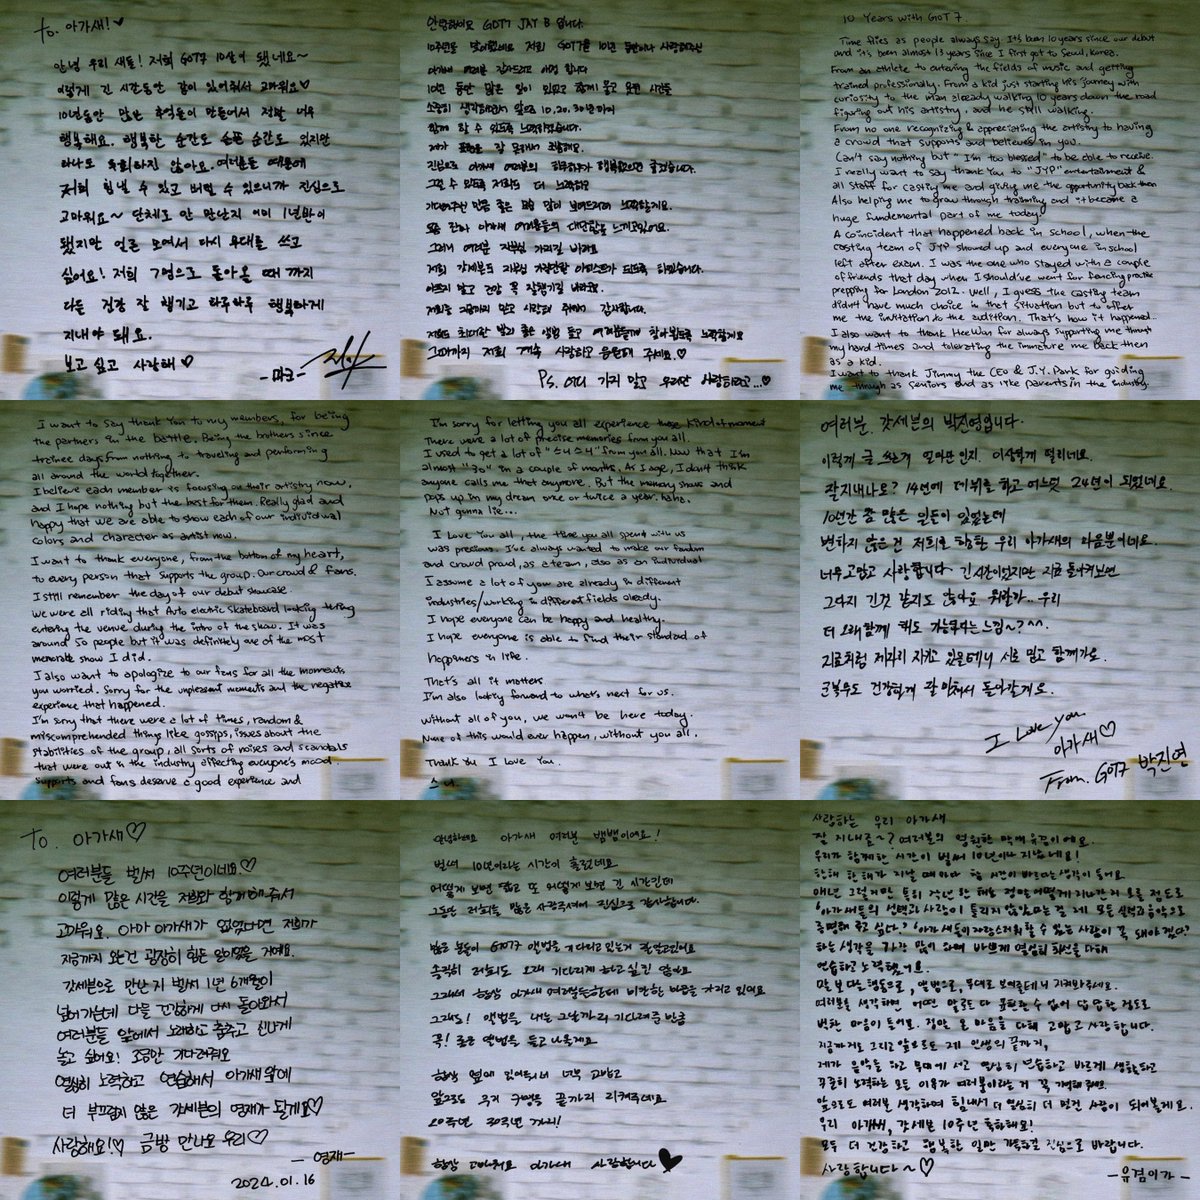 to. 아가새!♡
안녕 우리 새들! 저희 GOT7 10살이 됐네요~
이렇게 긴 시간동안 같이 있어줘서 고마워요♡
10년동안 많은 추억들이 만들어서 정말 너무
행복해요. 행복한 순간도 슬픈 순간도 있지만
하나도 후회하진 않아요. 여러분들 때문에
저희 힘낼 수 있고 버틸 수 있으니까 진심으로
고마워요~ 단체로 안 만난지 이미 1년반이
됐지만 얼른 모여서 다시 무대를 쓰고
싶어요! 저희 7명으로 돌아올 때 까지
다들 건강 잘 챙기고 하루하루 행복하게
지내야 돼요.
보고 싶고 사랑해♡
-마크-
안녕하세요 GOT7 JAY B 입니다.
10주년을 맞이했네요 저희 GOT7을 10년 동안이나 사랑해주신
아가새 여러분 감사드리고 애정 합니다
10년 동안 많은 일이 있었고 함께 웃고 울던 시간을
소중히 생각하면서 앞으로 10, 20, 30년 까지
함께 할 수 있도록 노력하겠습니다.
제가 표현을 잘 못해서 죄송해요.
진심으로 아가새 여러분의 하루하루가 행복했으면 좋겠습니다.
그럴 수 있도록 저희도 더 노력하고
기다려주신 만큼 좋은 모습 많이 보여드리려 노력할게요.
요즘 참 아가새 여러분들의 대단함을 느끼고있어요.
그러니 여러분 자부심 가지길 바라요
저희 갓세븐도 자부심 가질만한 아티스트가 되도록 하겠습니다.
아프지 말고 건강 꼭 잘챙기길 바라요.
저희를 지금까지 믿고 사랑해 주셔서 감사합니다.
저희도 최대한 빨리 좋은 앨범 들고 여러분들께 찾아뵙도록 노력할게요
그때까지 저희 계속 사랑하고 응원해 주세요.♡
Ps. 어디 가지 말고 우리만 사랑하라고...♡
10 Years with GOT7.
Time flies as people always say. It's been 10 years since our debut
and it's been almost 13 years since I first got to Seoul, Korea.
From an athlete to entering the fields of music and getting
trained professionally. From a kid just starting his journey with
curiosity to the man already walking 10 years down the road
figuring out his artistry, and he still walking.
From no one recognizing & appreciating the artistry to having
a crowd that supports and believes in you.
Can't say nothing but "I'm too blessed" to be able to receive.
I really want to say thank You to "JYP" entertainment &
all staff for casting me and giving me the opportunity back then
Also helping me to grow through training and it became a
huge fundemental part of me today.
A coincident that happened back in school, when the
casting team of JYP showed up and everyone in school
left after exam. I was the one who stayed with a couple
of friends that day when I should've went for fencing practice
prepping for London 2012. Well, I guess the casting team
didn't have much choice in that situation but to offer
me the invitation to the audition. That's how it happened.
I also want to thank HeeWon for always supporting me through
my hard times and tolerating the immature me back then
as a kid.
I want to thank Jimmy the CEO & J.Y. Park for guiding
me through as seniors and as like parents in the industry.
I want to say thank You to my members, for being
the partners in the battle. Being the brothers since
trainee days from nothing to traveling and performing
all around the world together.
I believe each member is focusing on their artistry now,
and I hope nothing but the best for them. Really glad and
happy that we are able to show each of our individual
colors and character as artist now.
I want to thank everyone, from the bottom of my heart,
to every person that supports the group. Our crowd & fans.
I still remember the day of our debut showcase.
We were all riding that Auto electric skateboard looking thing
entering the venue during the intro of the show. It was
around 50 people but it was definitely one of the most
memorable show I did.
I also want to apologize to our fans for all the moments
you worried. Sorry for the unpleasent moments and the negative
experience that happened.
I'm sorry that there were a lot of times, random &
miscomprehended things like gossips, issues about the
stabilities of the group, all sorts of noises and scandals
that were out in the industry affecting everyone's mood.
Supports and fans deserve a good experience and
I'm sorry for letting you all experience those kind of moment
There were a lot of precise memories from you all.
I used to get a lot of "스니스니" from you all. Now that I'm
almost "30" in a couple of months. As I age, I don't think
anyone calls me that anymore. But the memory shows and
pops up in my dream once or twice a year. haha.
Not gunna lie...
I Love You all, the time you all spent with us
was precious. I've always wanted to make our fandom
and crowd proud, as a team, also as an individual
I assume a lot of you are already in different
industries/working in different fields already.
I hope everyone can be happy and healthy.
I hope everyone is able to find their standard of
happiness in life.
That's all it matters
I'm also looking forward to what's next for us.
Without all of you, we won't be here today.
None of this would ever happen, without you all.
Thank You I Love You.
스니.
여러분. 갓세븐의 박진영입니다.
이렇게 글 쓰는게 얼마만인지. 이상하게 떨리네요.
잘지내나요? 14년에 데뷔를 하고 어느덧 24년이 되었네요.
10년간 참 많은 일들이 있었는데
변하지 않은건 저희로 향한 우리 아가새의 마음뿐이네요.
너무 고맙고 사랑합니다. 긴 시간이었지만 지금 돌이켜보면
그다지 긴것 같지도 않아요 뭐랄까.. 우리
더 오래 함께 해도 가능하다는 느낌~? ^^.
지금처럼 제자리 지키고 있을테니 서로 믿고 함께가요.
군복무도 건강하게 잘 마쳐서 돌아갈게요.
I Love you.
아가새♡
From. GOT7 박진영
To. 아가새♡
여러분들 벌써 10주년이네요♡
이렇게 많은 시간을 저희와 함께해주셔서
고마워요. 아마 아가새가 없었다면 저희가
지금까지 오는건 굉장히 힘든 일이었을 거예요.
갓세븐으로 만난지 벌써 1년 6개월이
넘어가는데 다들 건강하게 다시 돌아와서
여러분들 앞에서 노래하고 춤추고 신나게
놀고 싶어요! 조금만 기다려줘요
열심히 노력하고 연습해서 아가새앞에
더 부끄럽지 않은 갓세븐의 영재가 될게요♡
사랑해요!♡ 금방 만나요 우리♡
- 영재-
2024.01.16
안녕하세요 아가새 여러분 뱀뱀이에요!
벌써 10년이라는 시간이 흘렀네요
어떻게 보면 짧고 또 어떻게 보면 긴 시간인데
그동안 저희를 많은 사랑주셔서 진심으로 감사합니다.
많은 분들이 GOT7 앨범을 기다리고 있는거 잘알고있어요
솔직히 저희도 오래 기다리게 하고싶진 않아요
그래서 항상 아가새 여러분들한테 미안한 마음을 가지고 있어요
그래도! 앨범을 내는 그날까지 기다려준 만큼
꼭! 좋은 앨범을 들고 나올게요
항상 옆에 있어줘서 너무 고맙고
앞으로도 우리 7명을 끝까지 지켜주세요
20주년 30주년 까지!
항상 고마워요 아가새 사랑합니다♥
사랑하는 우리 아가새
잘 지내죠~? 여러분의 영원한 막내 유겸이에요.
우리가 함께한 시간이 벌써 10년이나 지났네요!
한해 한해가 지날 때마다 참 시간이 빠르다는 생각이 들어요.
매년 그렇지만 특히 작년 한 해는 정말 어떻게 지나간지 모를 정도로
'아가새들의 선택과 사랑이 틀리지 않았다는 걸 제 모든 실력과 음악으로
증명해 주고 싶다.' '아가새들이 자랑스러워 할 수 있는 사람이 꼭 돼야겠다.'
하는 생각을 가장 많이 하며 바쁘게 열심히 최선을 다해
연습하고 노력했어요.
말 보다는 행동으로, 앨범으로, 무대로 보여줄테니 지켜봐주세요.
여러분을 생각하면 어떤 말로도 다 표현할 수 없어 답답할 정도로
벅찬 마음이 들어요. 정말 온 마음을 다해 고맙고 사랑합니다.
지금까지도 그리고 앞으로도 제 인생의 끝까지,
제가 음악을 하고 무대에 서고 열심히 연습하고 바르게 생활하고
꾸준히 노력하는 모든 이유가 여러분이라는 거 꼭 기억해주세요.
앞으로도 여러분 생각하며 힘내서 더 열심히 더 멋진 사람이 되어볼게요.
우리 아가새, 갓세븐 10주년 축하해요!
모두 더 건강하고 행복한 일만 가득하길 진심으로 바랍니다.
사랑합니다~♡
-유겸이가-